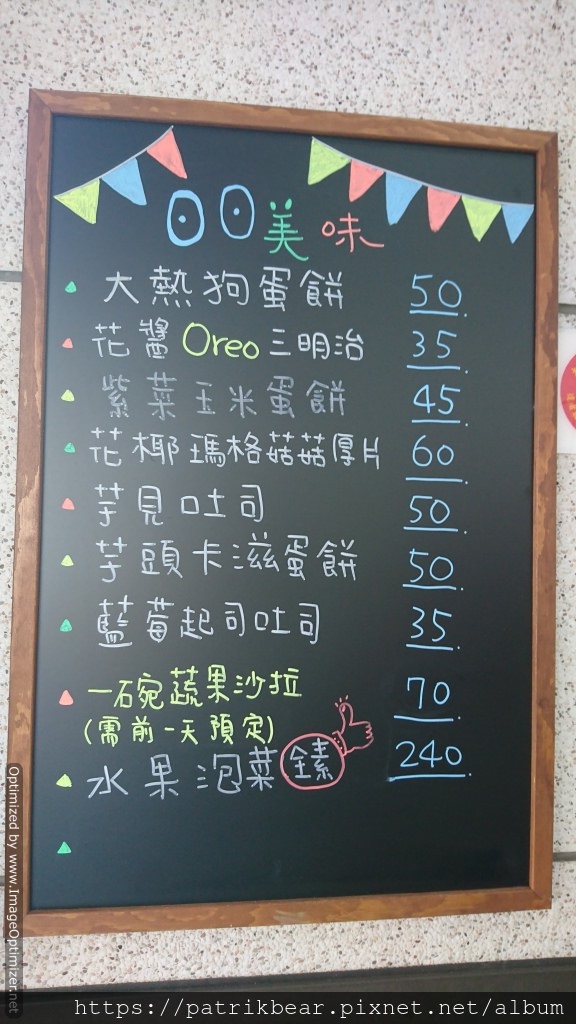 美味
大熱狗蛋餅 50.
花醬Oreo三明治 35.
紫菜玉米蛋餅 45.
花椰瑪格菇菇厚片 60.
芋見吐司 50.
芋頭卡滋蛋餅 50.
藍莓起司吐司 35.
一碗蔬果沙拉 70.
(需前一天預定)
水果泡菜 全素 240.
Optimized by www.ImageOptimizer.net
https://patrikbear.pixnet.net/album